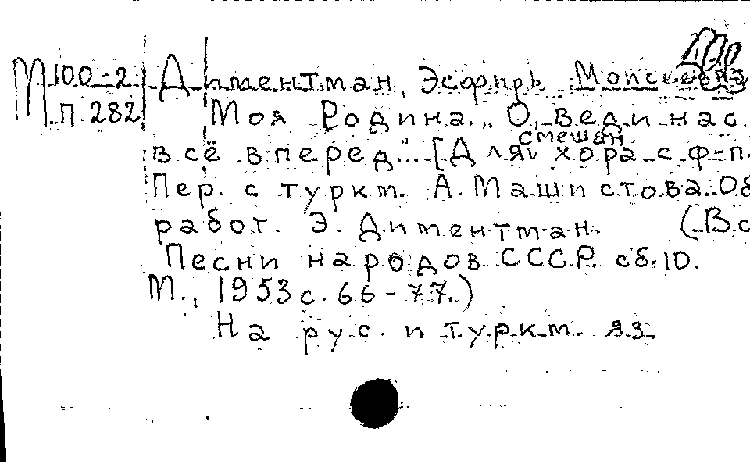 М 100-2 Диментман, Эсфирь Моисеевна
П. 282 Моя Родина. „О, веди нас
смешан.
всё вперед". [Для хора с ф-п.
Пер. с туркм. А. Машистова. Об
работ. Э. Диментман. (В с
Песни народов СССР. сб. 10.
М., 1953 с. 66-77.)
На рус. и туркм. яз.